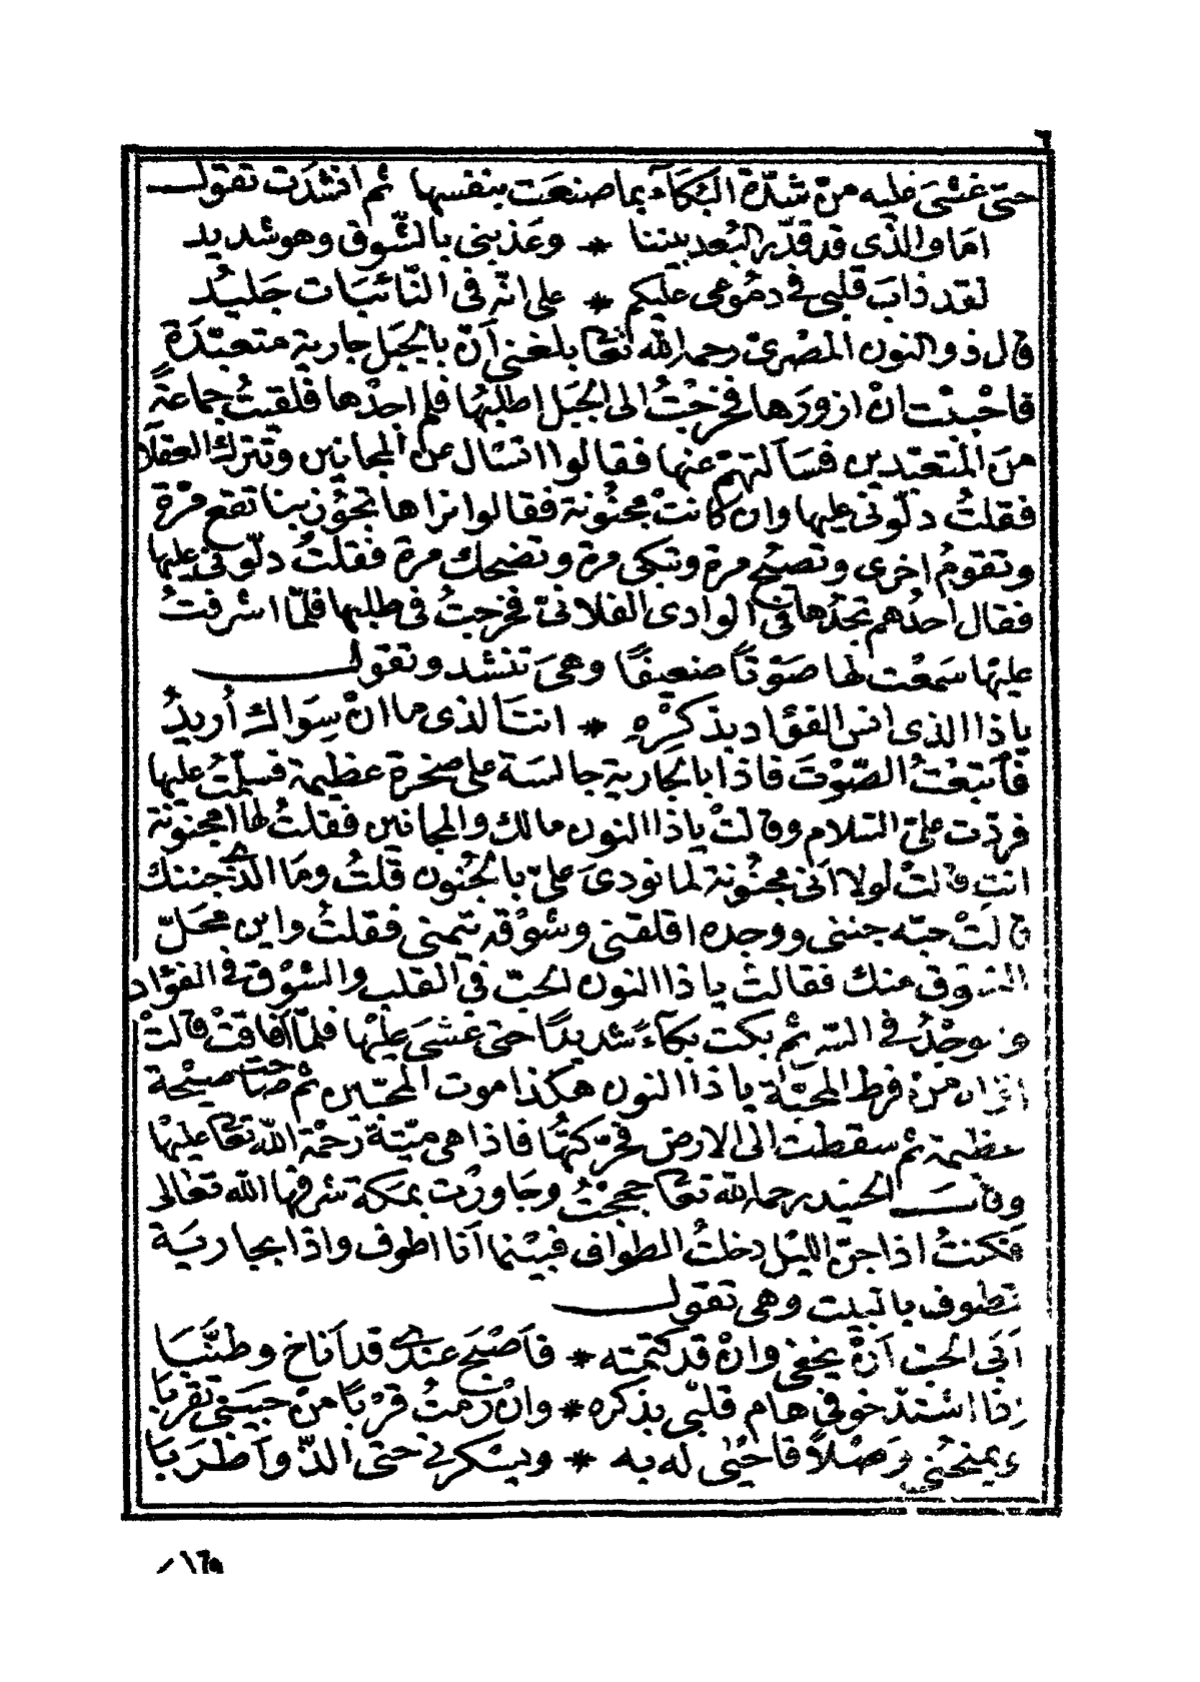 حتى غشى عليه من شدّة البكاء بما صنعت بنفسها ثم انشدت تقول
اما والذي قد قدّر البعد بيننا * وعذبني بالشّوق وهو شديد
لقد ذاب قلبي في دموعي عليكم * على انّه في النّائبات جليد
قال ذو النون المصرىّ رحمه الله تعا بلغني أنّ بالجبل جارية متعبّدة
فاحببت ان ازورها فخرجت الى الجبل اطلبها فلم اجدها فلقيت جماعة
من المتعبّدين فسألتهم عنها فقالوا اتسال عن المجانين وتترك العقلا
فقلت دلّوني عليها وان كانت مجنونة فقالوا نراها تجوز بنا تقع مرّة
وتقوم اخرى وتصيح مرة وتبكى مرة وتضحك مرة فقلت دلّوني عليها
فقال احدهم تجدها في الوادى الفلانىّ فخرجت في طلبها فلمّا اشرفت
عليها سمعت لها صوتًا ضعيفًا وهى تنشد وتقول
يا ذا الذى انس الفؤاد بذكره * انت الذى ما ان سواك أريد
فاتبعت الصّوت فاذا بالجارية جالسة على صخرة عظيمة فسلمت عليها
فردّت علىّ السّلام وقالت يا ذا النون مالك والمجانين فقلت لها امجنونة
انت قالت لولا انى مجنونة لما نودى علىّ بالجنون قلت وما الذي جننك
قالت حبّه جننى ووجده اقلقني وشوقه تيمنى فقلت واين محلّ
الشوق منك فقالت يا ذا النون الحبّ في القلب والشوق في الفؤاد
والوجد في السّر ثم بكت بكاءً شديدًا حتى غشى عليها فلمّا افاقت قالت
من فرط المحبّة يا ذا النون هكذا موت المحبّين ثم صاحت صيحة
عظيمة ثم سقطت الى الارض فحرّكتها فاذا هى ميّتة رحمة الله تعا عليها
وقال الجنيد رحمه الله تعا حججت وجاورت بمكة شرفها الله تعالى
فكنت اذا جنّ الليل دخلت الطواف فبينما أنا اطوف واذا بجارية
تطوف بالبيت وهى تقول
أبى الحب أن يخفى وان قد كتمته * فأصبح عندي قد أناخ وطنّبا
اذا اشتدّ خوفي هام قلبى بذكره * وان رمت قربًا من حبيبى تقربا
ويمنحنى وصلاً فاحيى له به * ويسكرني حتى الذّ وأطربا